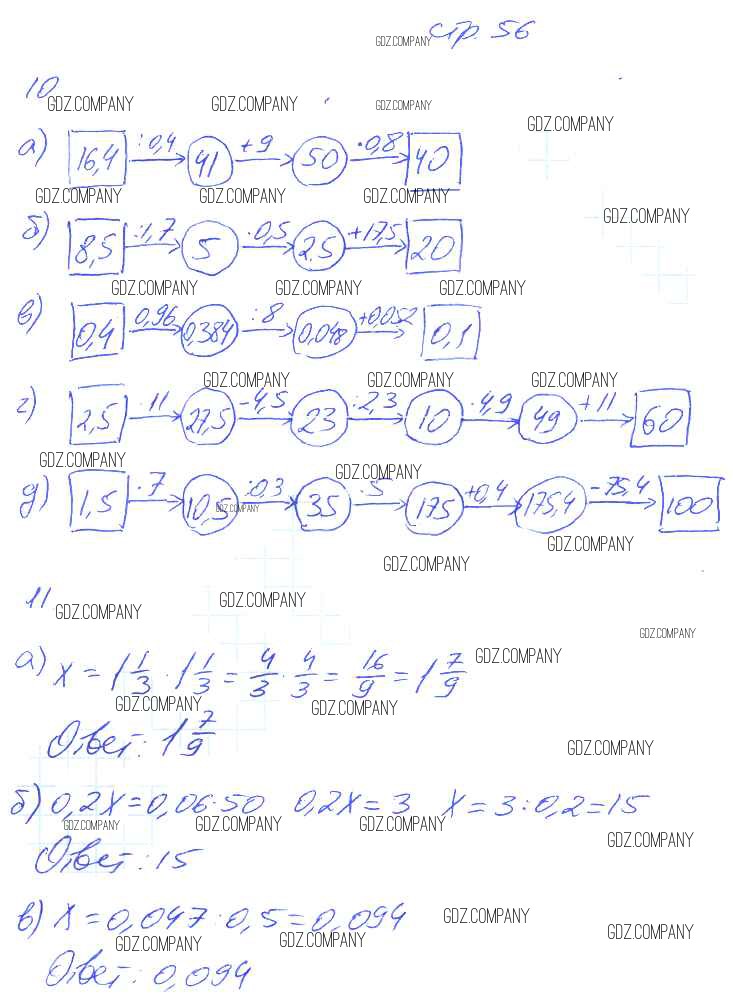 стр. 56
GDZ.COMPANY
10
GDZ.COMPANY GDZ.COMPANY GDZ.COMPANY
GDZ.COMPANY
а) 16,4 :0,4 41 +9 50 ·0,8 40
GDZ.COMPANY GDZ.COMPANY GDZ.COMPANY
GDZ.COMPANY
б) 8,5 :1,7 5 ·0,5 2,5 +17,5 20
GDZ.COMPANY GDZ.COMPANY GDZ.COMPANY
в) 0,4 ·0,96 0,384 :8 0,048 +0,052 0,1
GDZ.COMPANY GDZ.COMPANY GDZ.COMPANY
г) 2,5 ·11 27,5 -4,5 23 :2,3 10 ·4,9 49 +11 60
GDZ.COMPANY GDZ.COMPANY
д) 1,5 ·7 10,5 :0,3 35 ·5 175 +0,4 175,4 -75,4 100
GDZ.COMPANY
GDZ.COMPANY
GDZ.COMPANY
11
GDZ.COMPANY GDZ.COMPANY
GDZ.COMPANY
а) x = 1 1/3 · 1 1/3 = 4/3 · 4/3 = 16/9 = 1 7/9
GDZ.COMPANY
GDZ.COMPANY GDZ.COMPANY
Ответ: 1 7/9
GDZ.COMPANY
б) 0,2x = 0,06·50 0,2x = 3 x = 3:0,2=15
GDZ.COMPANY GDZ.COMPANY GDZ.COMPANY
GDZ.COMPANY
Ответ: 15
в) x = 0,047:0,5 = 0,094
GDZ.COMPANY
GDZ.COMPANY
GDZ.COMPANY GDZ.COMPANY
Ответ: 0,094